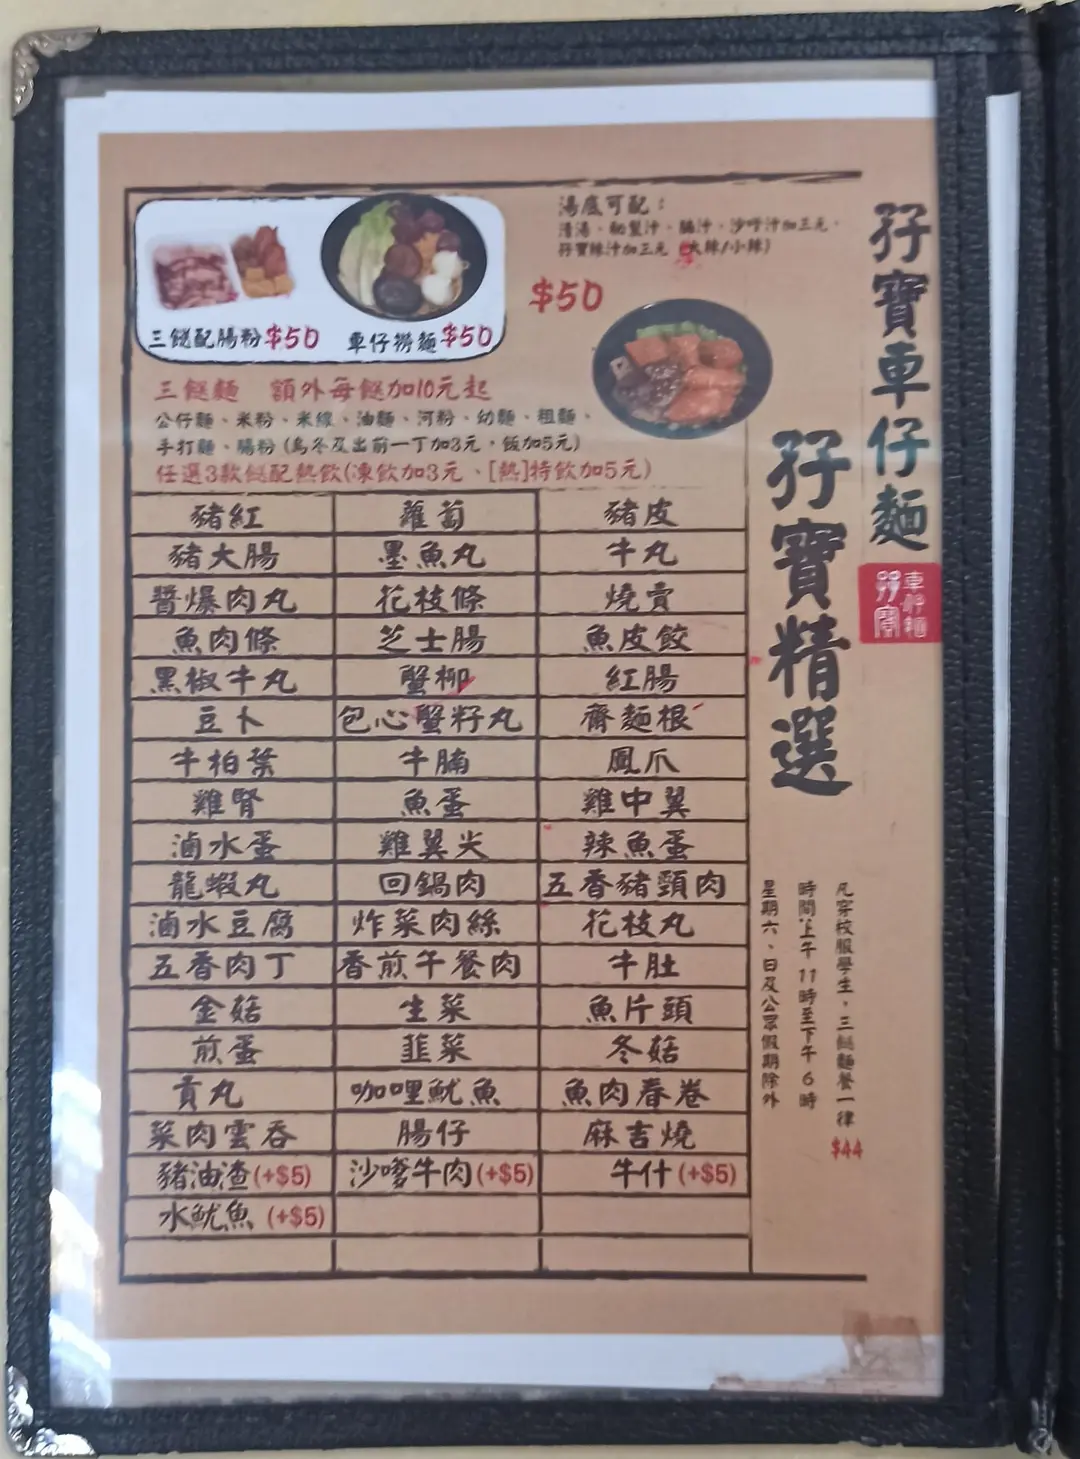 湯底可配：
清湯、秘製汁、腩汁、沙嗲汁加三元、
孖寶辣汁加三元 (大辣/小辣)
$50
三餸配腸粉$50 車仔撈麵$50
三餸麵 額外每餸加10元起
公仔麵、米粉、米線、油麵、河粉、幼麵、粗麵、
手打麵、腸粉 (烏冬及出前一丁加3元，飯加5元)
任選3款餸配熱飲(凍飲加3元、[熱]特飲加5元)
孖寶車仔麵
車仔麵
孖寶
孖寶精選
豬紅 蘿蔔 豬皮
豬大腸 墨魚丸 牛丸
醬爆肉丸 花枝條 燒賣
魚肉條 芝士腸 魚皮餃
黑椒牛丸 蟹柳 紅腸
豆卜 包心蟹籽丸 齋麵根
牛柏葉 牛腩 鳳爪
雞腎 魚蛋 雞中翼
滷水蛋 雞翼尖 辣魚蛋
龍蝦丸 回鍋肉 五香豬頸肉
滷水豆腐 炸菜肉絲 花枝丸
五香肉丁 香煎午餐肉 牛肚
金菇 生菜 魚片頭
煎蛋 韮菜 冬菇
貢丸 咖哩魷魚 魚肉春卷
菜肉雲吞 腸仔 麻吉燒
豬油渣(+$5) 沙嗲牛肉(+$5) 牛什(+$5)
水魷魚 (+$5)
凡穿校服學生，三餸麵餐一律
$44
時間:上午11時至下午6時
星期六、日及公眾假期除外